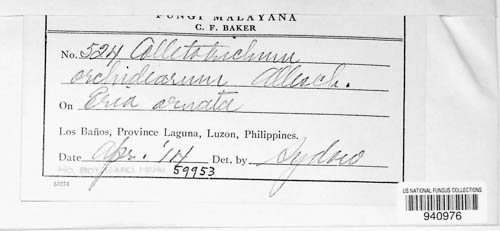 FUNGI MALAYANA
C. F. BAKER
No. 524 Colletotrichum
orchidearum Allesch.
On Eria ornata
Los Baños, Province Laguna, Luzon, Philippines.
Date Apr. '14 Det. by Sydow
MO. BOT. GARD. HERB. 59953
US NATIONAL FUNGUS COLLECTIONS
940976